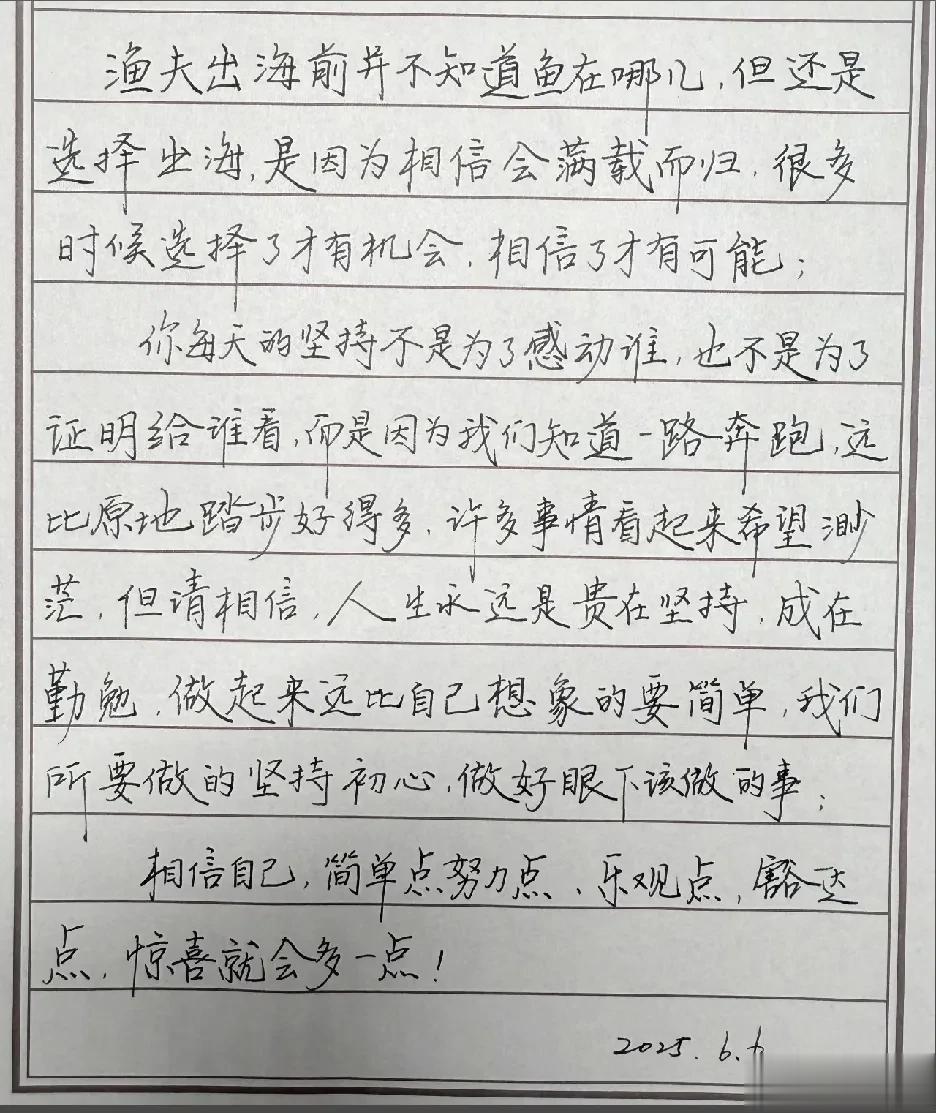 渔夫出海前并不知道鱼在哪儿，但还是
选择出海，是因为相信会满载而归，很多
时候选择了才有机会，相信了才有可能；
你每天的坚持不是为了感动谁，也不是为了
证明给谁看，而是因为我们知道一路奔跑，远
比原地踏步好得多，许多事情看起来希望渺
茫，但请相信，人生永远是贵在坚持，成在
勤勉，做起来远比自己想象的要简单，我们
所要做的坚持初心，做好眼下该做的事；
相信自己，简单点努力点、乐观点，豁达
点，惊喜就会多一点！
2025.6.6